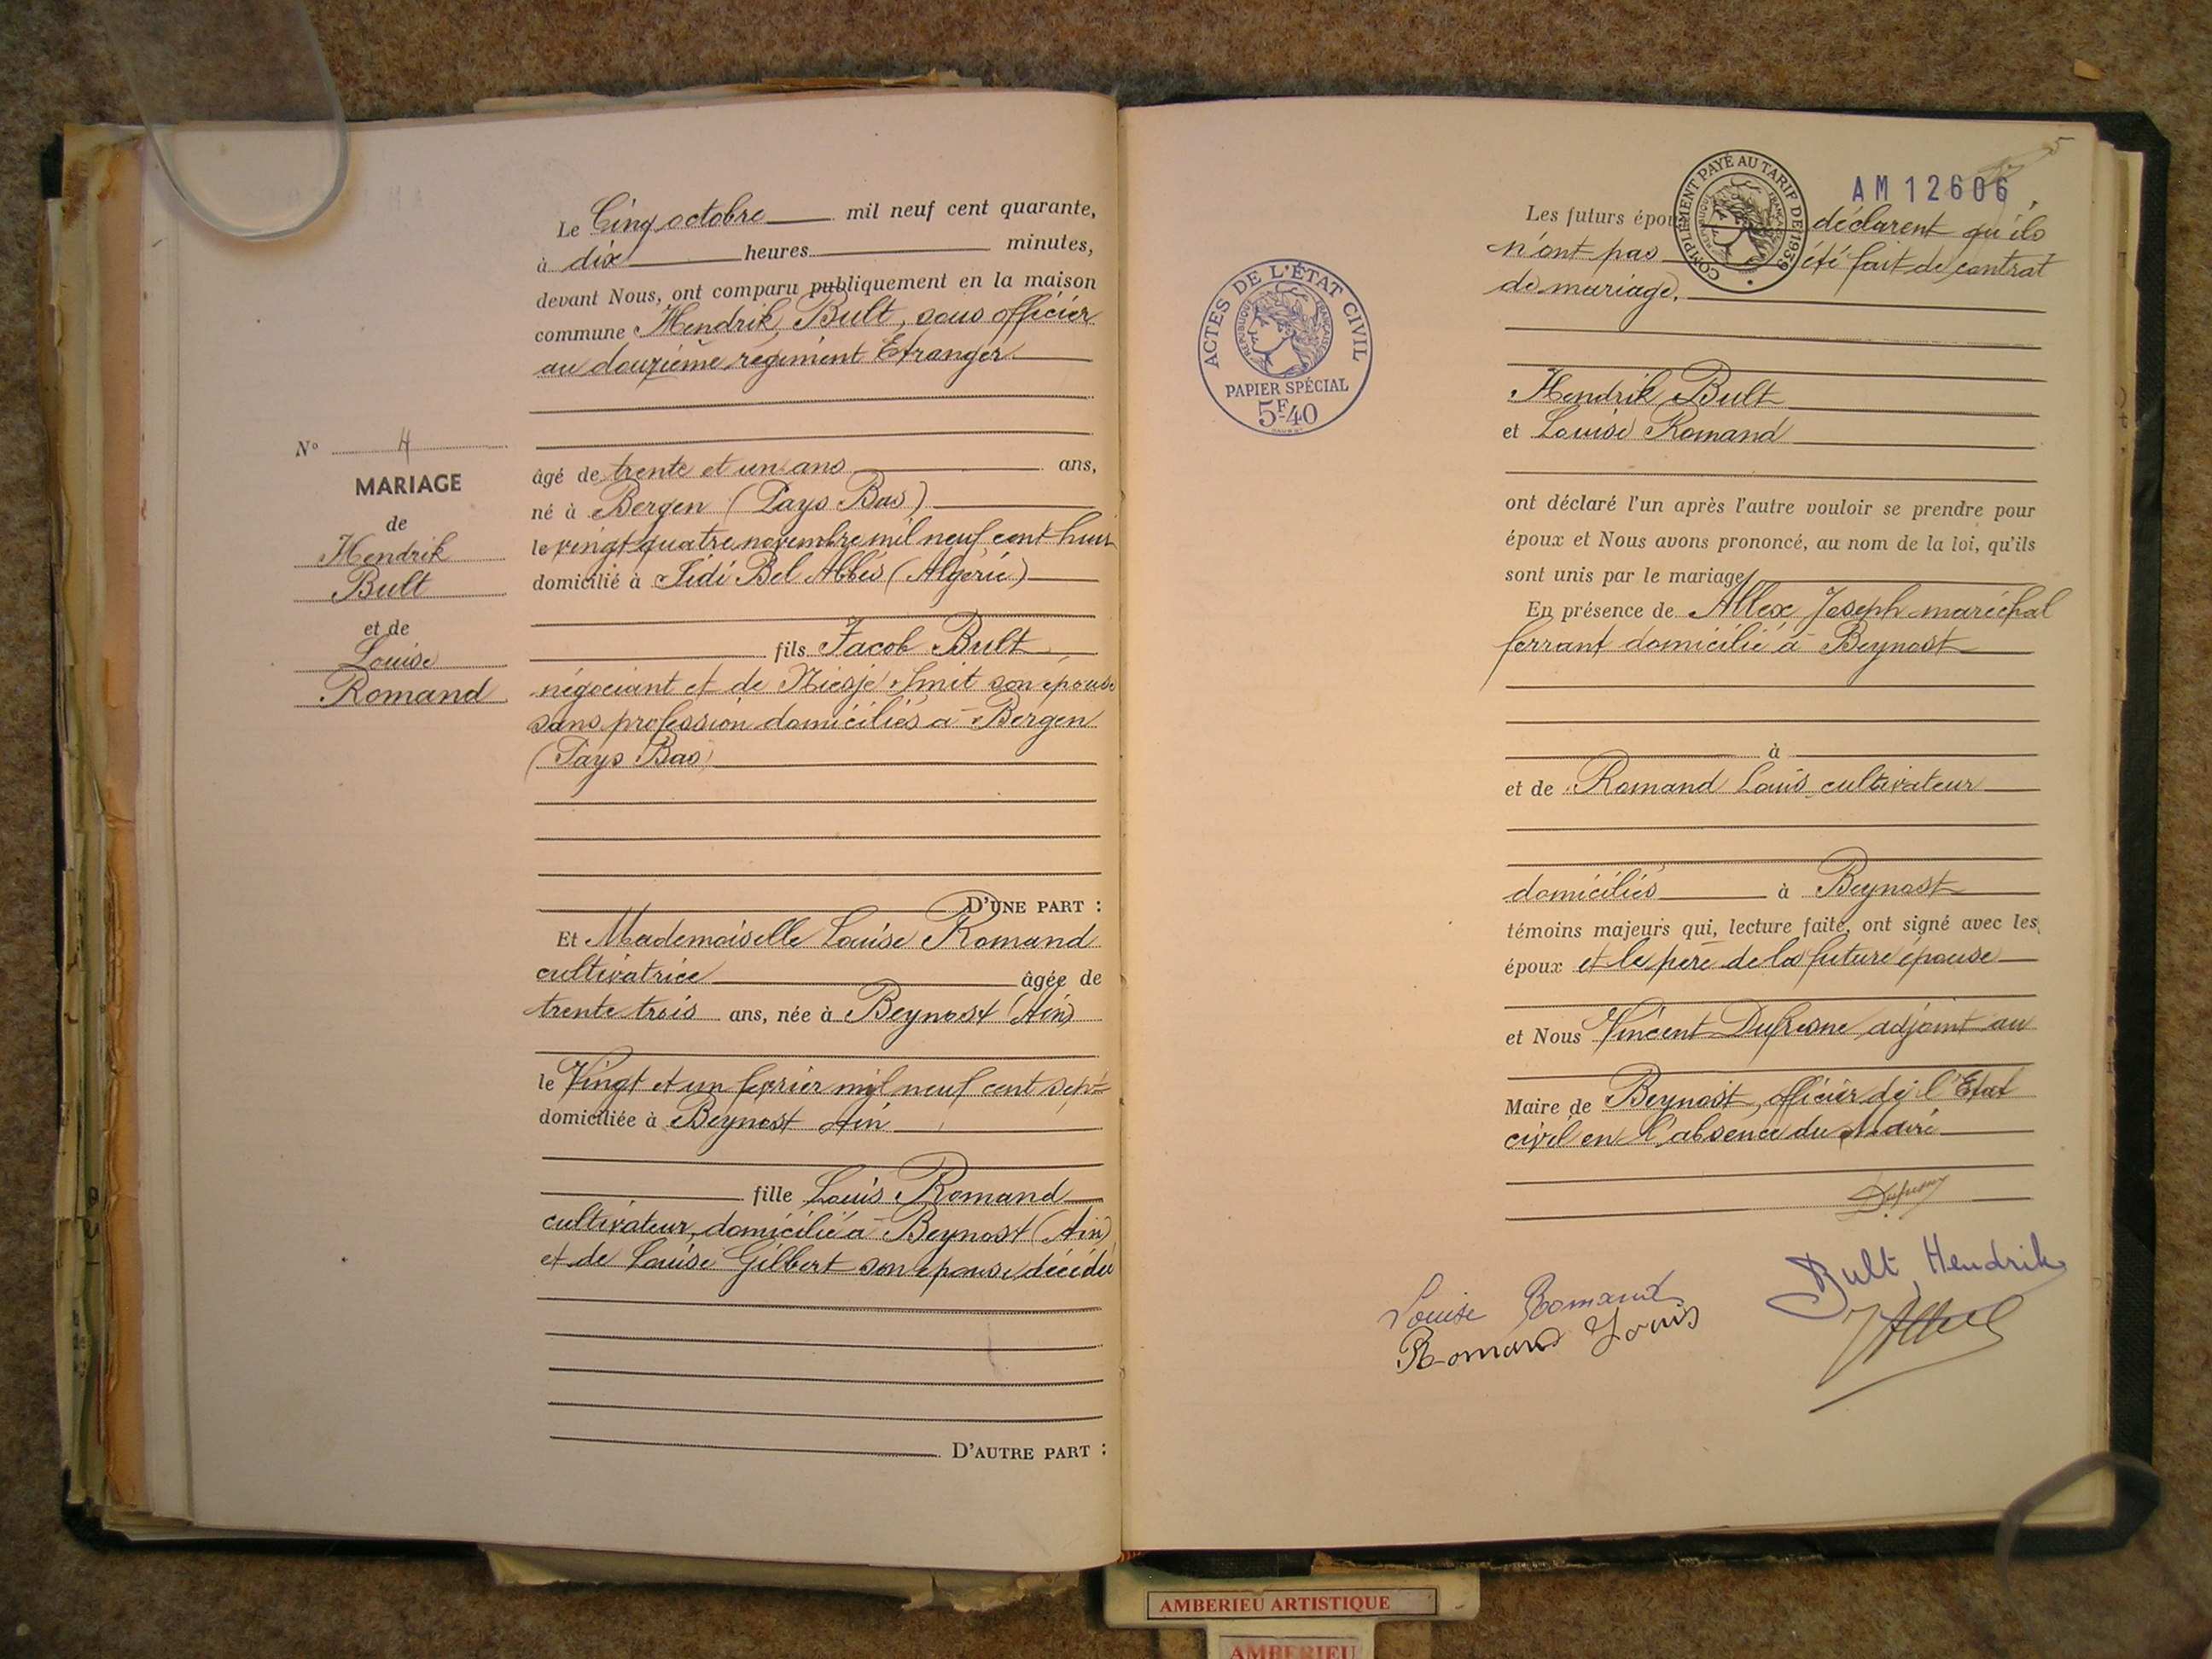 Le Cinq octobre mil neuf cent quarante,
à dix heures minutes,
devant Nous, ont comparu publiquement en la maison
commune Hendrik Bult, sous officier
au douzième régiment Etranger
N° 4
MARIAGE
de
Hendrik
Bult
et de
Louise
Romand
âgé de trente et un ans ans,
né à Bergen (Pays Bas)
le vingt quatre novembre mil neuf cent huit
domicilié à Sidi Bel Abbès (Algérie)
fils Jacob Bult
négociant et de Niesje Smit son épouse
sans profession domiciliés à Bergen
(Pays Bas)
D'UNE PART :
Et Mademoiselle Louise Romand
cultivatrice âgée de
trente trois ans, née à Beynost (Ain)
le Vingt et un février mil neuf cent sept
domiciliée à Beynost Ain
fille Louis Romand
cultivateur, domicilié à Beynost (Ain)
et de Louise Gilbert son épouse décédée
D'AUTRE PART :
ACTES DE L'ÉTAT CIVIL
RÉPUBLIQUE FRANÇAISE
PAPIER SPÉCIAL
5F-40
COMPLÉMENT PAYÉ AU TARIF DE 1939
5
AM 12606
Les futurs époux déclarent qu'ils
n'ont pas été fait de contrat
de mariage.
Hendrik Bult
et Louise Romand
ont déclaré l'un après l'autre vouloir se prendre pour
époux et Nous avons prononcé, au nom de la loi, qu'ils
sont unis par le mariage
En présence de Allex Joseph maréchal
ferrant domicilié à Beynost
à
et de Romand Louis cultivateur
domiciliés à Beynost
témoins majeurs qui, lecture faite, ont signé avec les
époux et le père de la future épouse
et Nous Vincent Dufresne adjoint au
Maire de Beynost, officier de l'Etat
civil en l'absence du Maire
Dufresne
Bult Hendrik
Louise Romand
Romand Louis
AMBERIEU ARTISTIQUE
AMBERIEU